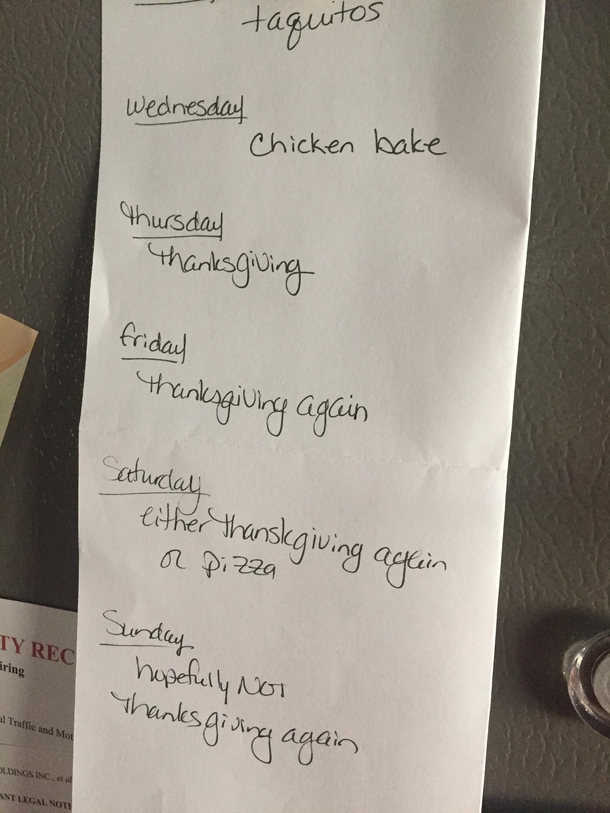 taquitos
Wednesday
Chicken bake
thursday
thanksgiving
friday
thanksgiving again
Saturday
either thanskgiving again
or pizza
Sunday
hopefully NOT
thanksgiving again
TY REC
iring
al Traffic and Mot
OLDINGS INC., et al
ANT LEGAL NOTI